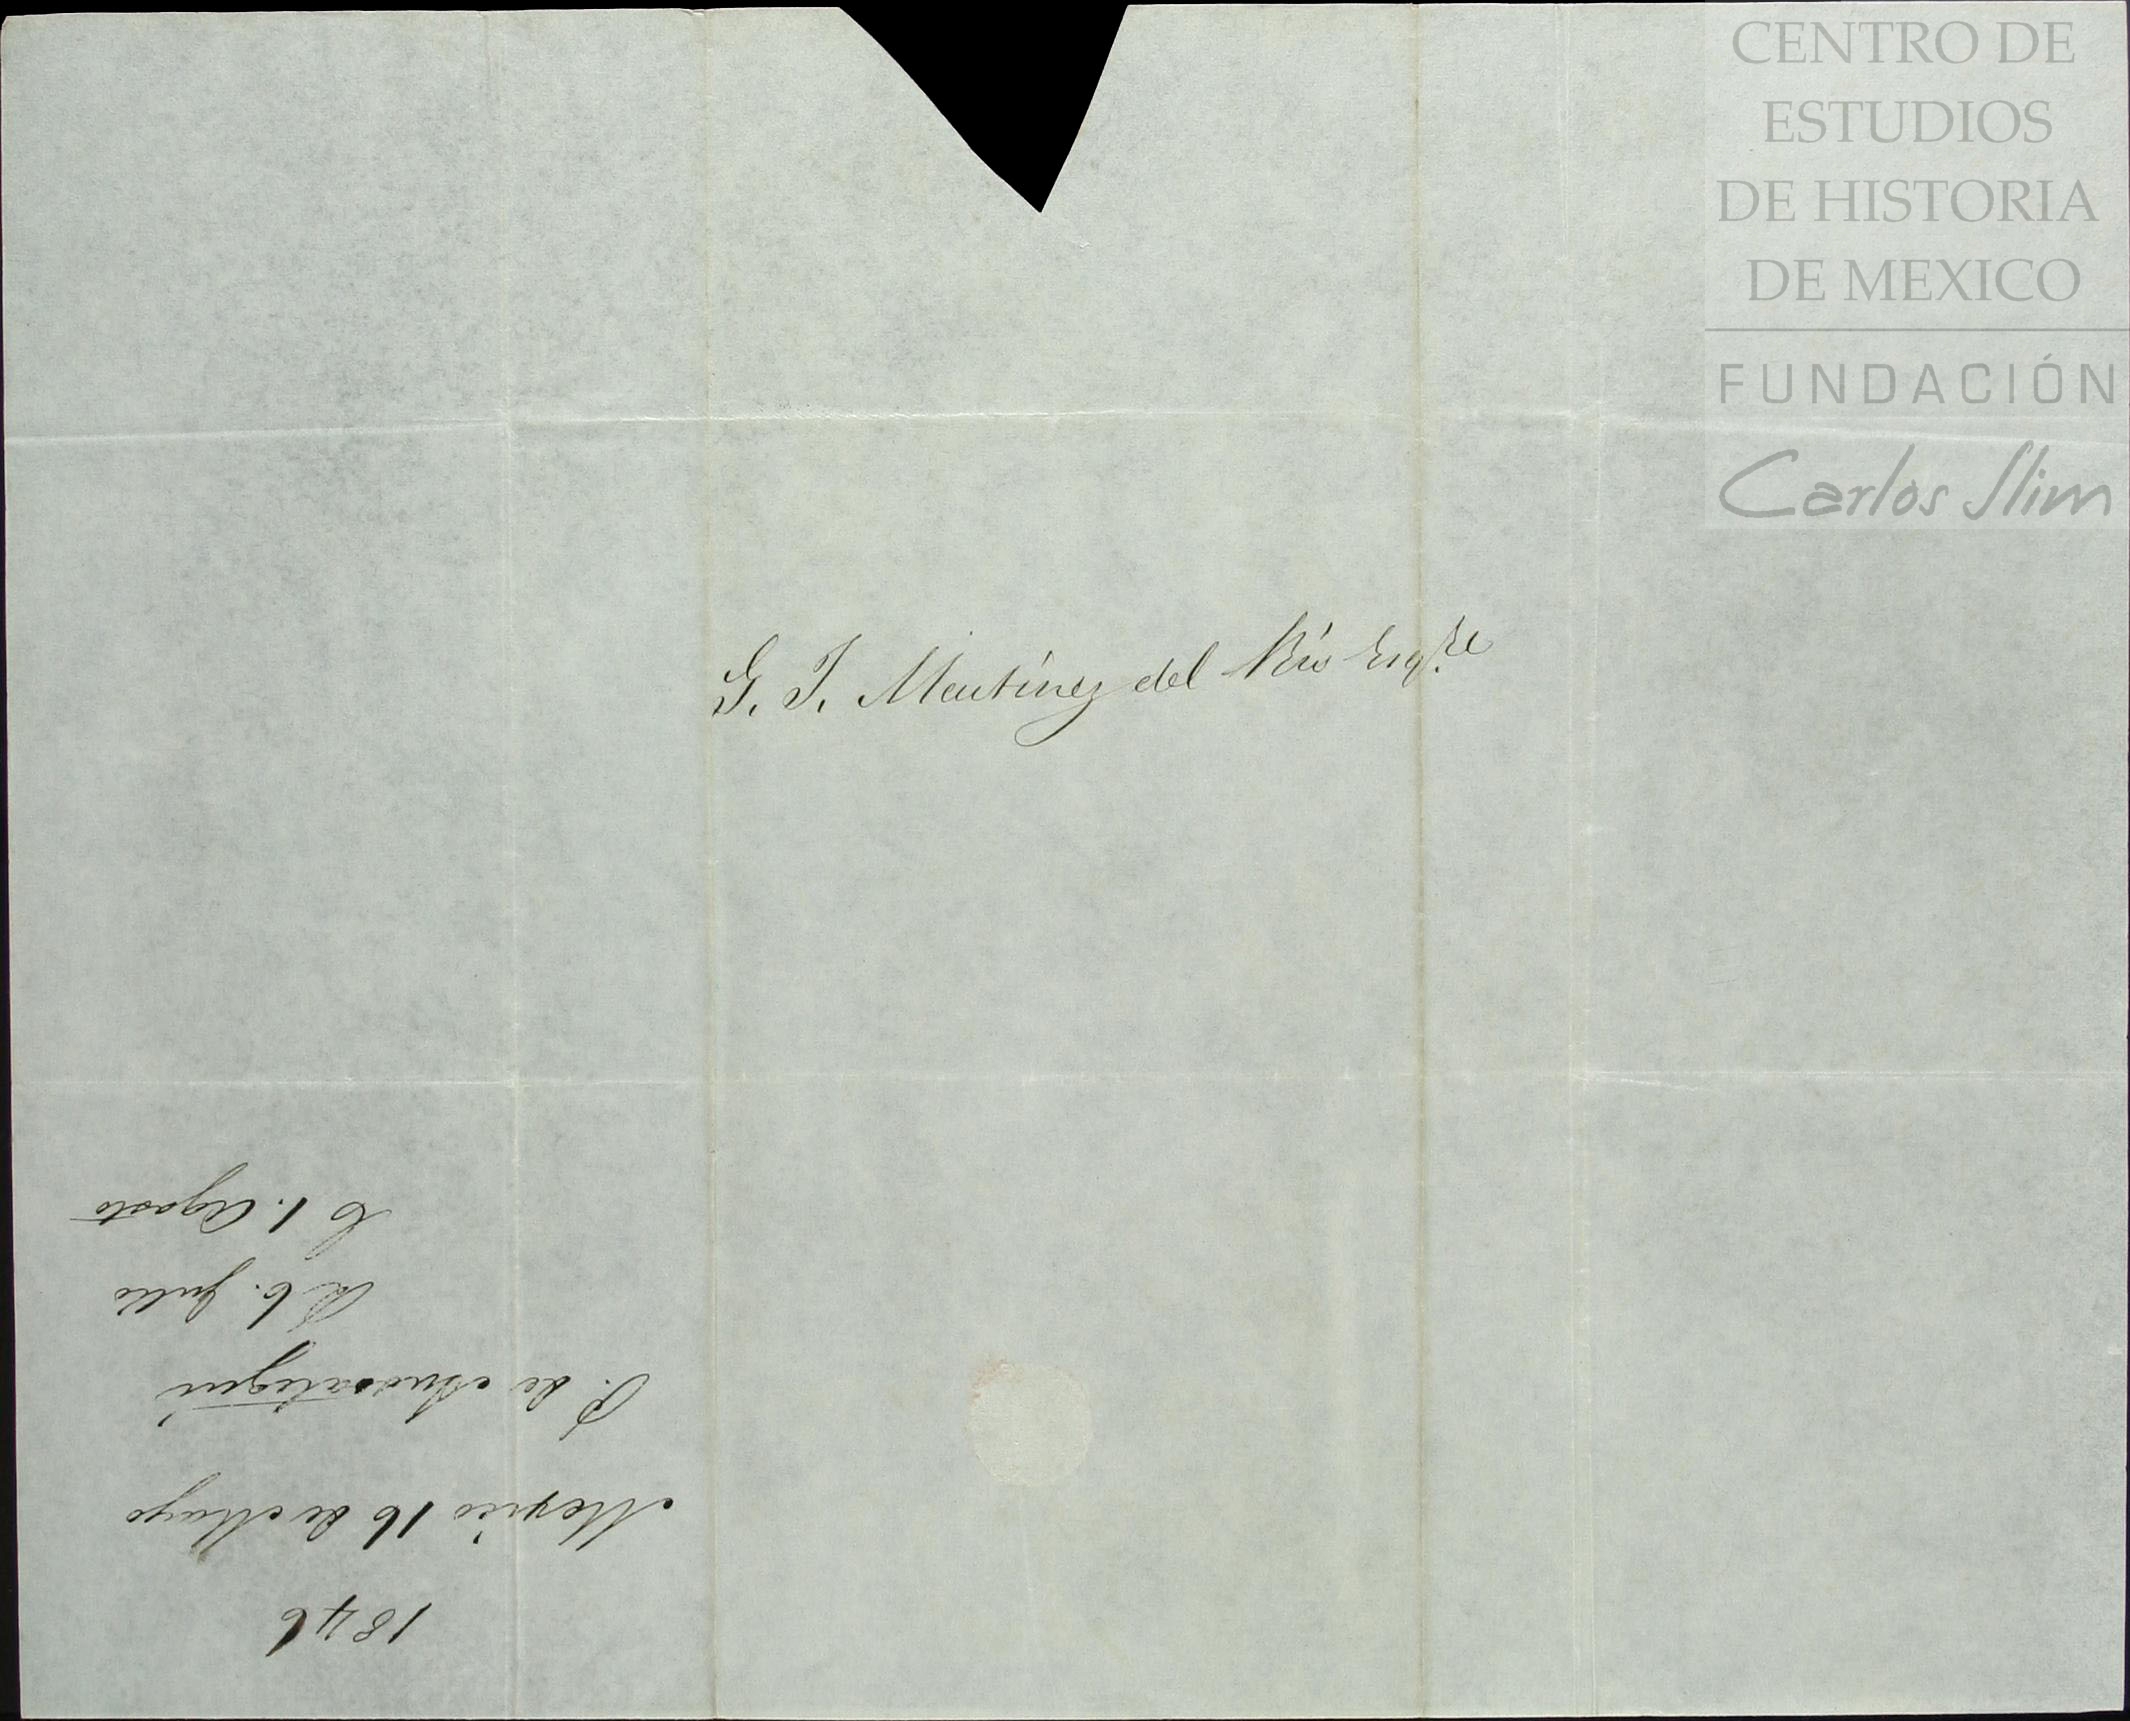 CENTRO DE
ESTUDIOS
DE HISTORIA
DE MEXICO
FUNDACIÓN
Carlos Slim
G. J. Martínez del Río Esqre
1846
Mexico 16 de Mayo
P. de Ansoategui
R 6. Julio
C 1. Agosto